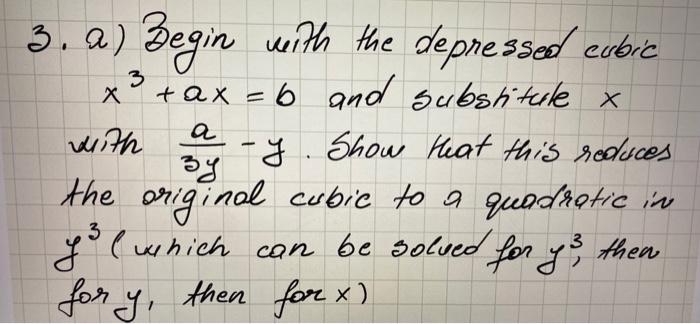 3. a) Begin with the depressed cubic
x³ + ax = b and substitute x
with a/3y - y. Show that this reduces
the original cubic to a quadratic in
y³ (which can be solved for y³, then
for y, then for x)